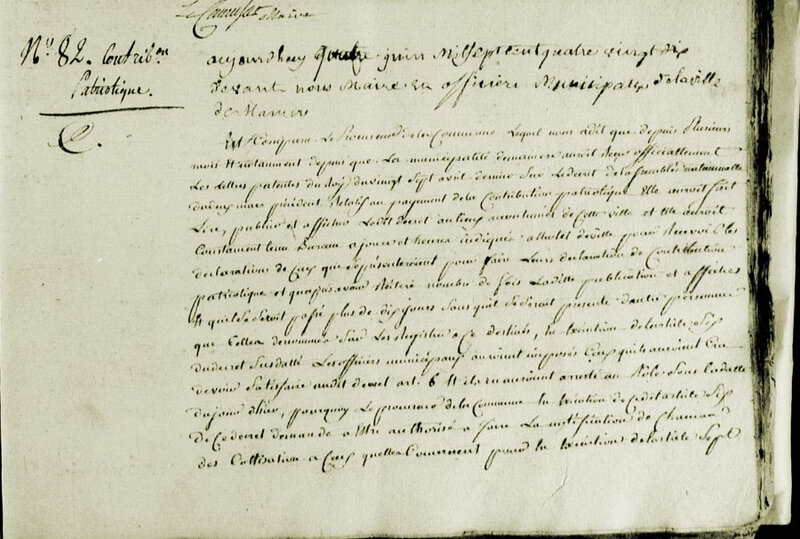 Maire
N.o 82. Contrib.on
Patriotique.
aujourdhuy quatre juin Mil sept cent quatre vingt dix
devant nous Maire et officiers Municipaux de la ville
de Mamers
Est Comparu Le Procureur de la Commune Lequel nous a dit que depuis Plusieurs
mois Et notamment depuis que La municipalité de mamers auroit Reçu officiellement
Les Lettres patentes du Roy du vingt Sept avril dernier Sur Le decret de la ssemblée nationnalle
du deux mars précédent Relatif au payment de la Contribution patriotique Elle auroit fait
Lire, publier et afficher Ledit decret au lieux accoutumés de Cette ville et Elle auroit
Constament tenu Bureau a jours et heures indiqués a lhotel de ville pour Recevoir Les
declarations de Ceux qui Se présenteroient pour faire Leurs declaration de Contribution
patriotique et quapres avoir Réiteré nombre de fois Laditte publication et affiches
Et quil Se Seroit passé plus de dix jours Sans quil Se Seroit presenté dautre personnes
que Celles denommées Sur Les Registres a Ce destinés, En Execution de larticle Six
du decret Susdatté Les officiers municipaux auroient imposés Ceux quils auroient Cru
devoir Satisfaire audit decret art. 6 Et ils en auroient arresté un Rôle Sous La datte
du jour dhier, pourquoy Le procureur de la Commune En Execution de Cedit article Six
de Ce decret demande a Estre authorisé a faire La notification de Chacune
des Cottisation a Ceux quelles Concernent pour En Execution de larticle Sept